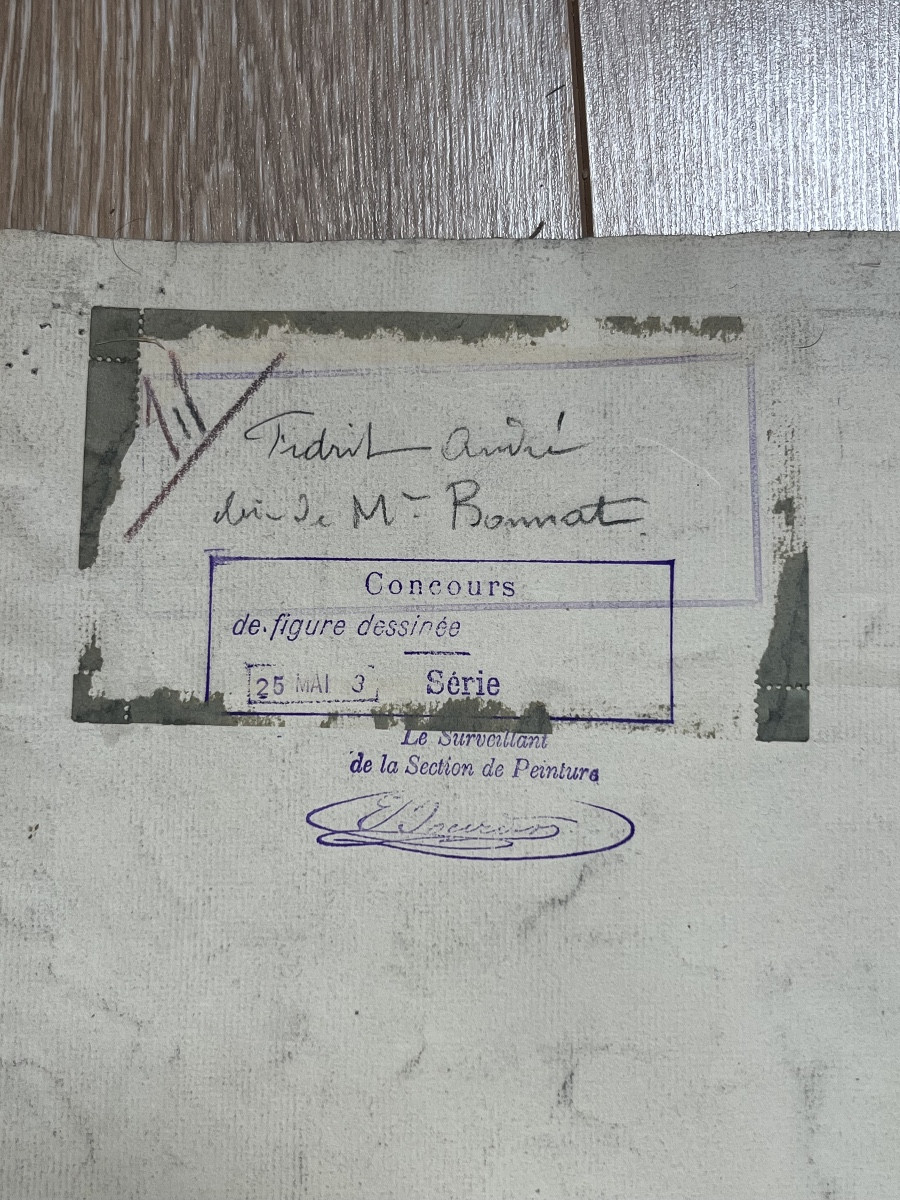 André
de Mr Bonnat
Concours
de figure dessinée
25 MAI 3
Série
Le Surveillant
de la Section de Peinture